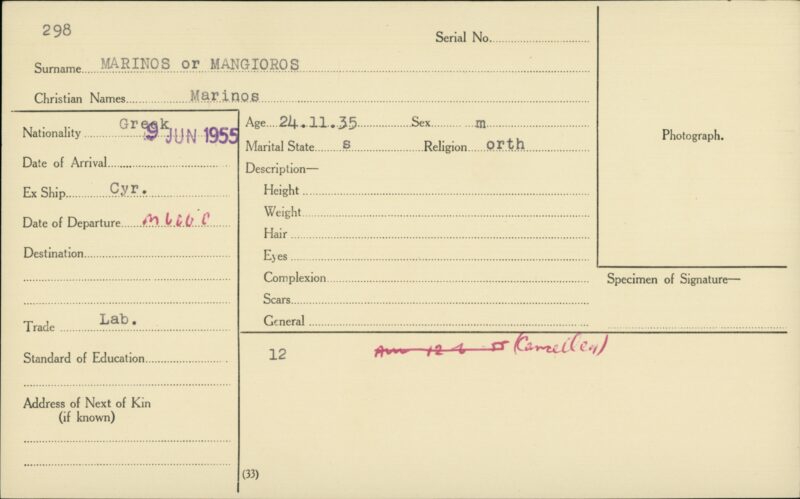 298
Serial No.
Surname MARINOS or MANGIOROS
Christian Names Marinos
Nationality Greek
9 JUN 1955
Date of Arrival
Ex Ship Cyr.
Date of Departure
Destination
Trade Lab.
Standard of Education
Address of Next of Kin
(if known)
Age 24.11.35 Sex m
Marital State s Religion orth
Description—
Height
Weight
Hair
Eyes
Complexion
Scars
General
Photograph.
Specimen of Signature—
12 12 6 55 (Cancelled)
(33)